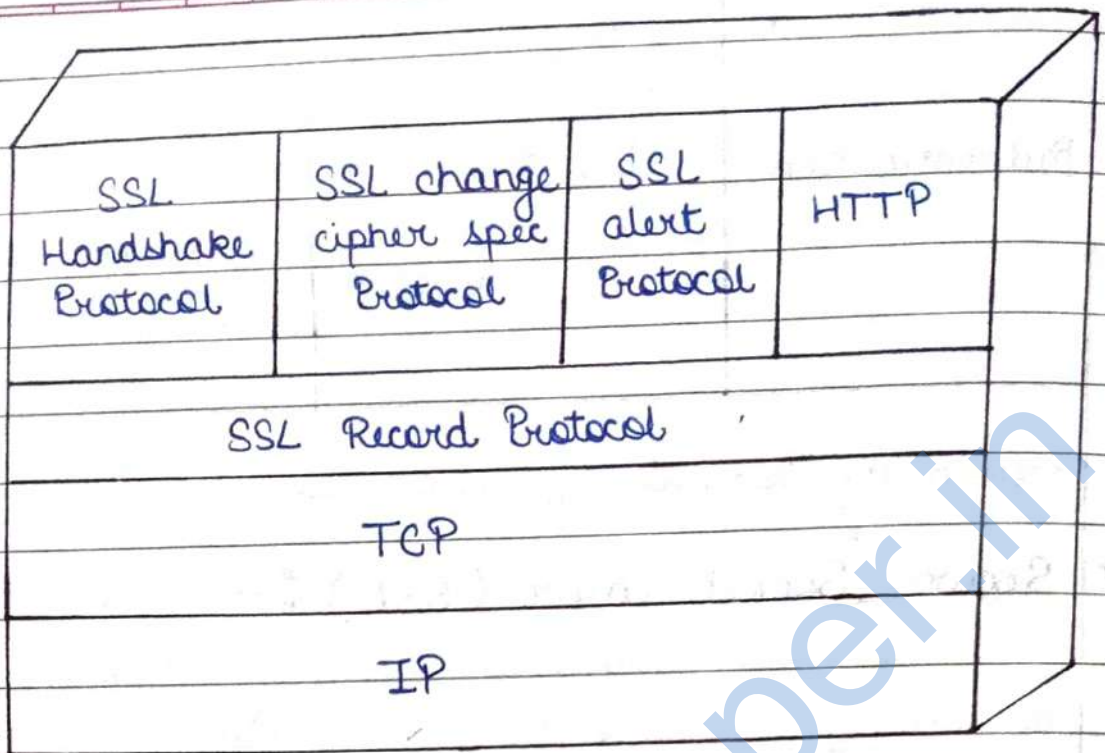 SSL
Handshake
Protocol
SSL change
cipher spec
Protocol
SSL
alert
Protocol
HTTP
SSL Record Protocol
TCP
IP
per.in